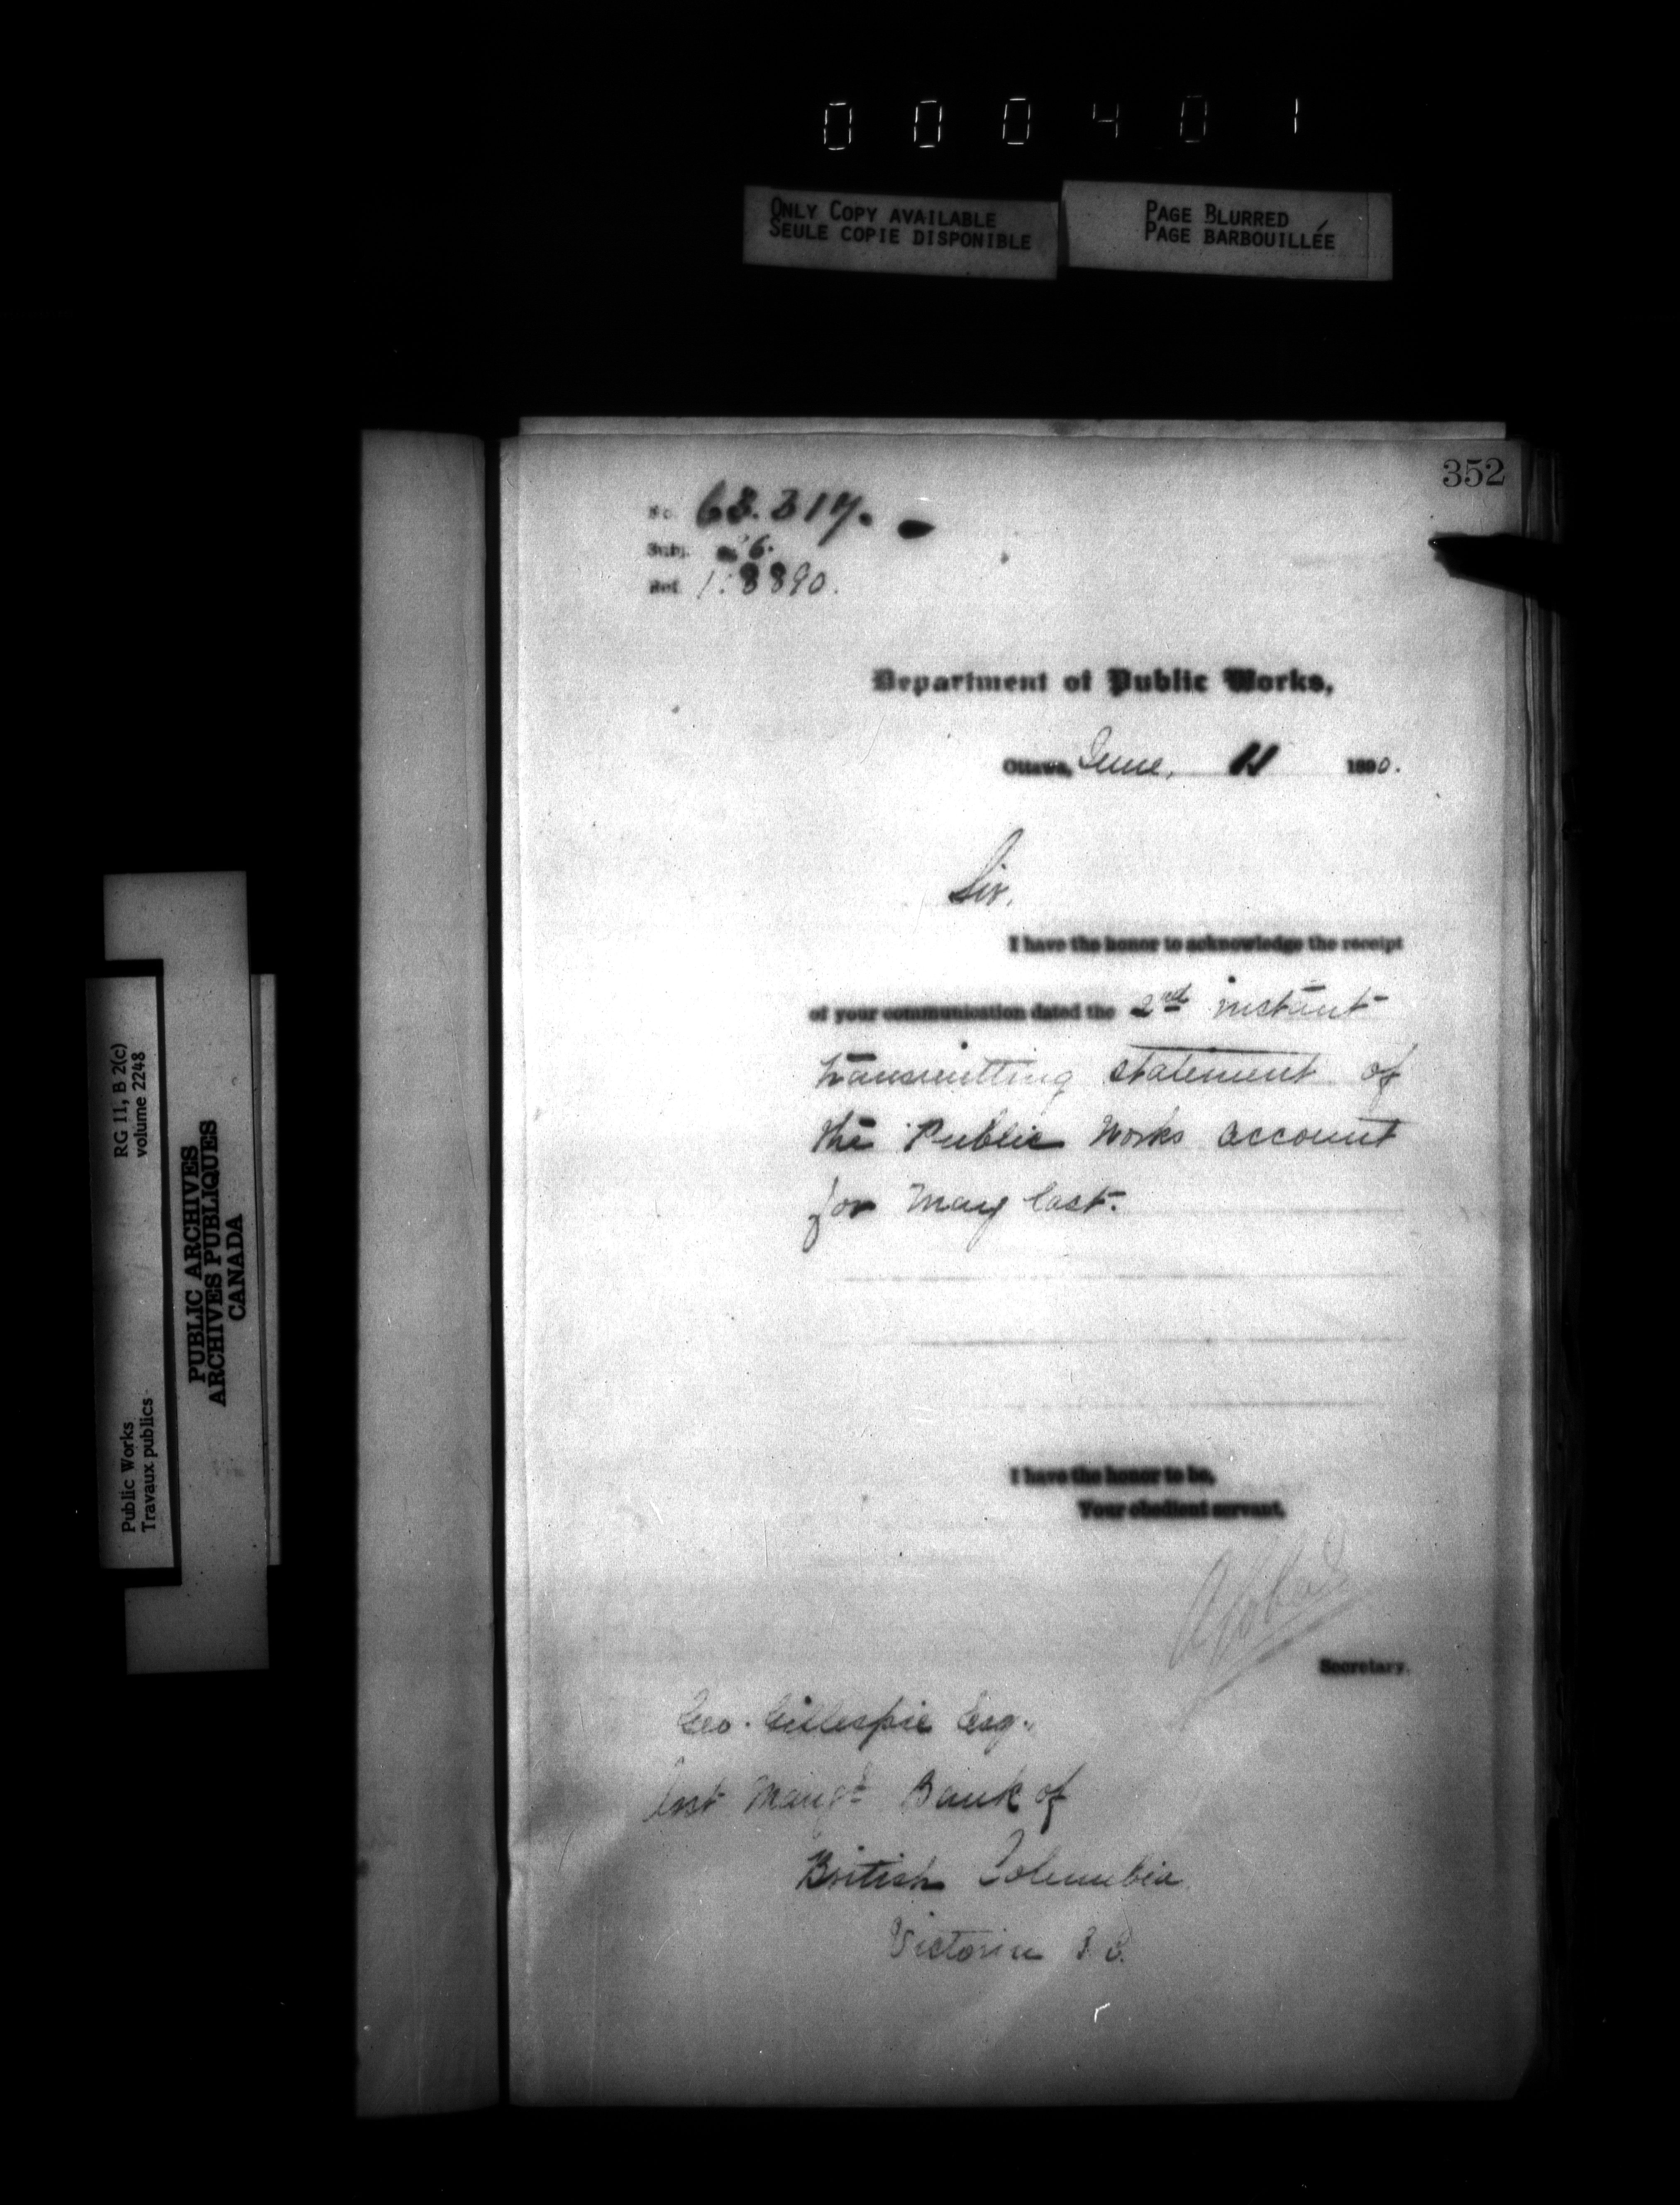 000401
ONLY COPY AVAILABLE
SEULE COPIE DISPONIBLE
PAGE BLURRED
PAGE BARBOUILLÉE
352
No. 63.317.
Subj. 6.
Ref. 1.8890.
Department of Public Works,
Ottawa, June, 11 1890.
Sir,
I have the honor to acknowledge the receipt
of your communication dated the 2nd instant
transmitting statement of
the Public Works account
for May last.
I have the honor to be,
Your obedient servant,
Secretary.
Geo. Gillespie Esq.
Asst Mangr Bank of
British Columbia
Victoria B.C.
RG 11, B 2(c)
volume 2248
Public Works
Travaux publics
PUBLIC ARCHIVES
ARCHIVES PUBLIQUES
CANADA